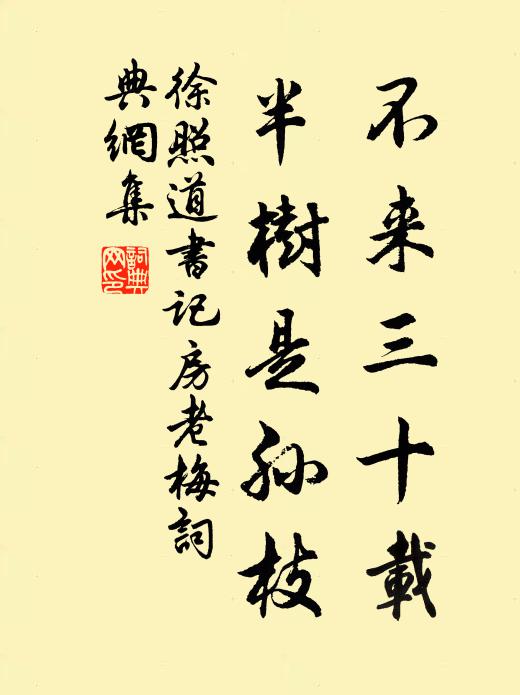 不来三十載
半樹是孙枝
徐照道書记房老梅詞
典網集
詞典
网印